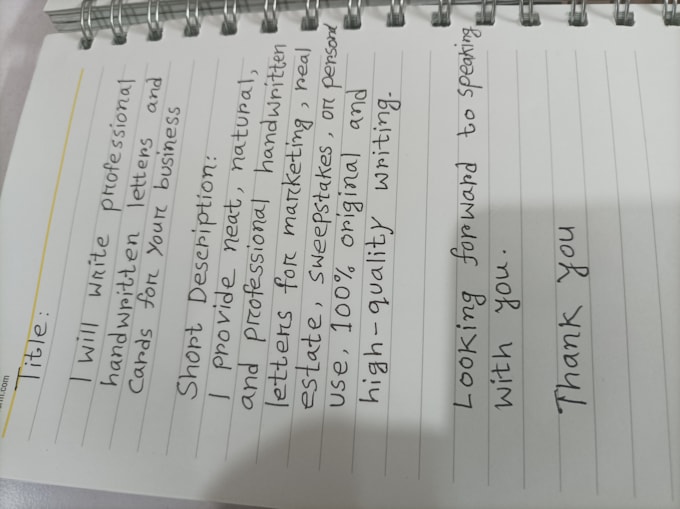 Title:
I will write professional
handwritten letters and
cards for your business
Short Description:
I provide neat, natural,
and professional handwritten
letters for marketing, real
estate, sweepstakes, or personal
use, 100% original and
high-quality writing.
Looking forward to speaking
with you.
Thank you